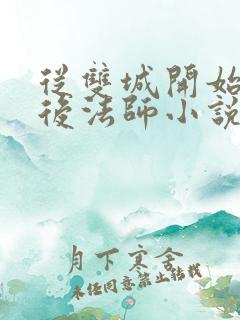 從雙城開始
後法師小說
月下寒舍
未任同意禁止转载